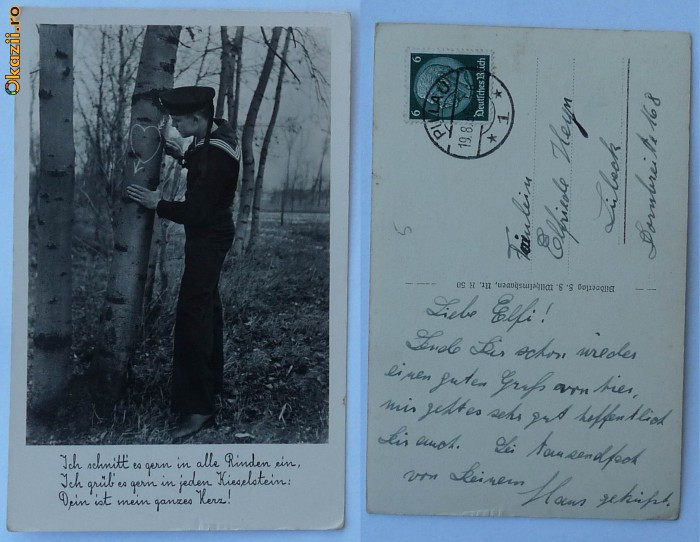 Okazii.ro
Ich schnitt' es gern in alle Rinden ein,
Ich grüb' es gern in jeden Kieselstein:
Dein ist mein ganzes Herz!
6 6
Deutsches Reich
PILLAU
19.8.
1
5
Fräulein
Elfriede Heyn
Lübeck
Dornbreite 168
Bildverlag S. S. Wilhelmshaven, Nr. R 50
Liebe Elfi!
Sende Dir schon wieder
einen guten Gruß von hier,
mir geht es sehr gut hoffentlich
Dir auch. Sei tausendfach
von Deinem
Hans geküßt.